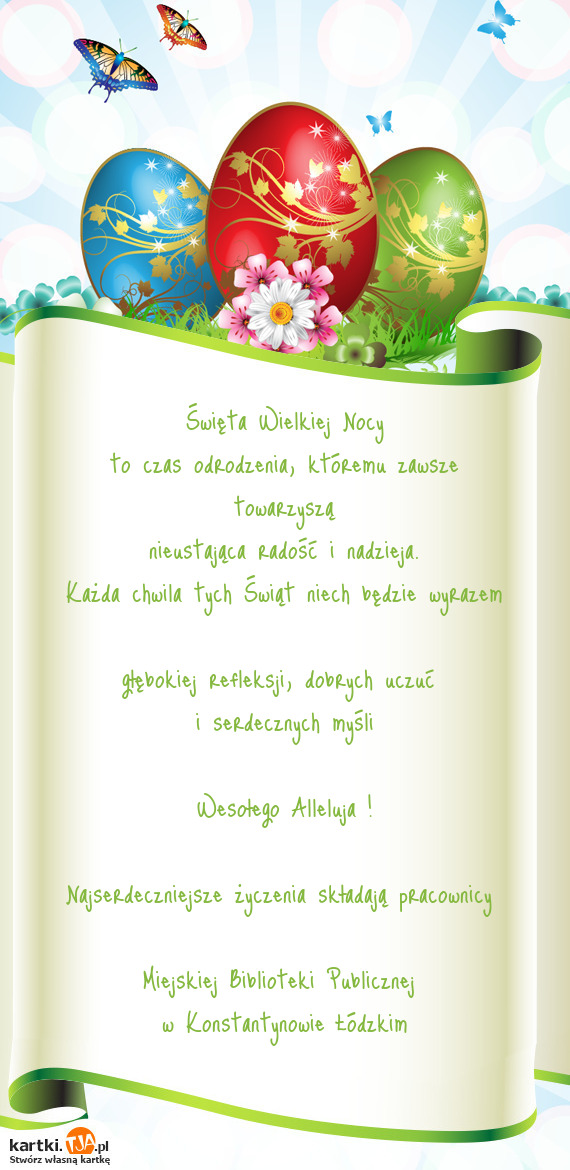 Święta Wielkiej Nocy
to czas odrodzenia, któremu zawsze
towarzyszą
nieustająca radość i nadzieja.
Każda chwila tych Świąt niech będzie wyrazem
głębokiej refleksji, dobrych uczuć
i serdecznych myśli
Wesołego Alleluja !
Najserdeczniejsze życzenia składają pracownicy
Miejskiej Biblioteki Publicznej
w Konstantynowie Łódzkim
kartki.TJA.pl
Stwórz własną kartkę